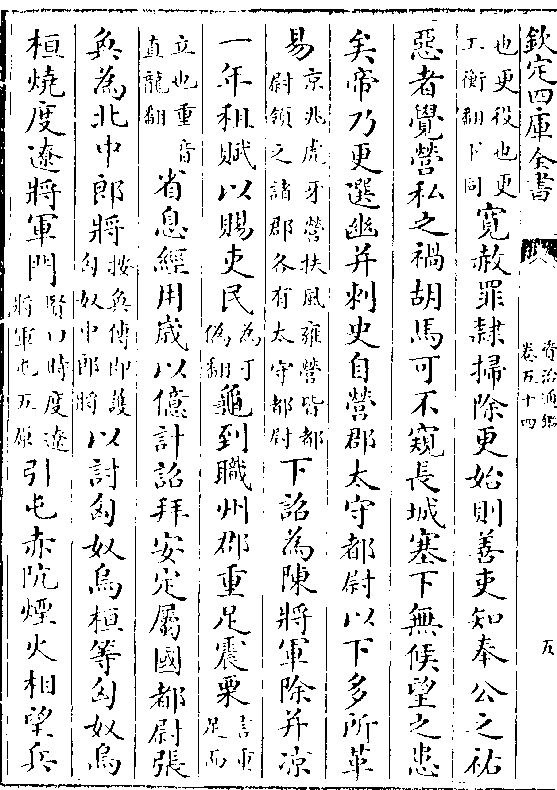 欽定四庫全書
資治通鑑
卷五十四
五
也更役也更
工衡翻下同
寛赦罪隷掃除更始則善吏知奉公之祐
惡者覺營私之禍胡馬可不窺長城塞下無候望之患
矣帝乃更選幽并刺史自營郡太守都尉以下多所革
易
京兆虎牙營扶風雍營皆都
尉領之諸郡各有太守都尉
下詔為陳將軍除并涼
一年租賦以賜吏民
為于
偽翻
龜到職州郡重足震栗
言重
足而
立也重音
直龍翻
省息經用歲以億計詔拜安定屬國都尉張
奐為北中郎將
按奐傳即護
匈奴中郎將
以討匈奴烏桓等匈奴烏
桓燒度遼將軍門
賢曰時度遼
將軍屯五原
引屯赤阬煙火相望兵